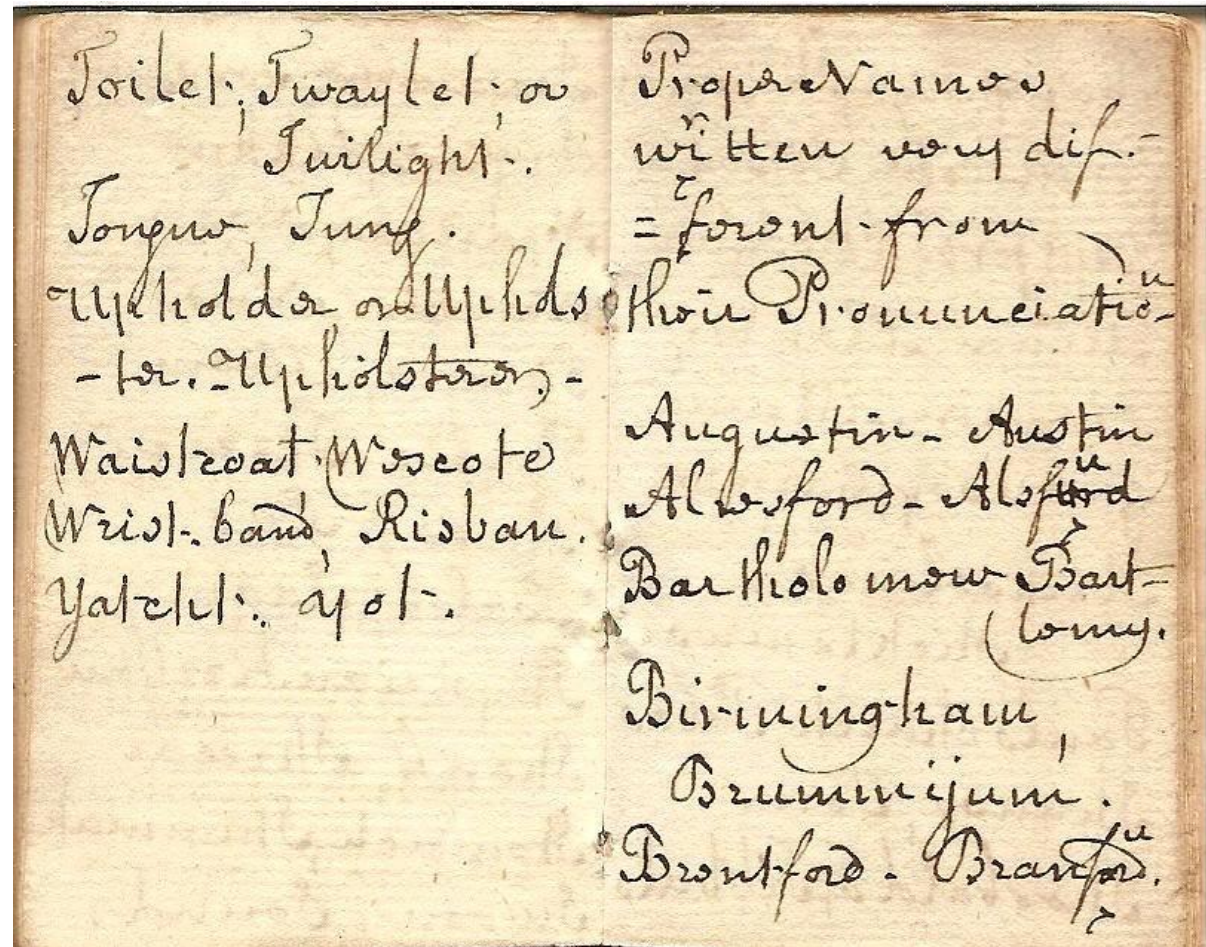 Toilet, Twaylet, or
Twilight.
Tongue, Tung.
Upholder or Uphols
-ter. Upholsterer.-
Waistcoat, Wescote
Wrist-band, Risban.
Yatcht. yot.
Proper Names
written very dif-
=ferent from
their Pronunciation
Augustin - Austin
Alresford - Alsfurd
Bartholomew Bart=
lemy.
Birmingham,
Brummijum.
Brentford - Branfurd.